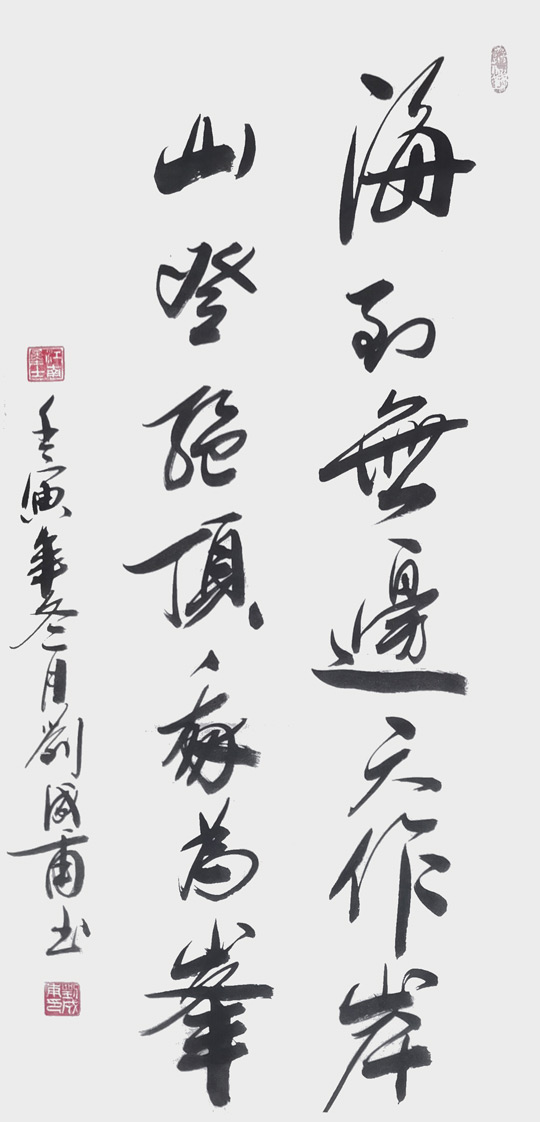 海到無邊天作岸
山登絕頂我為峯
壬寅年冬二月劉甫书
江南